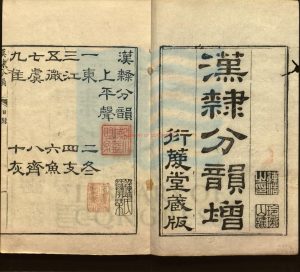 漢隸分韻增
衍堂藏版
漢隸分韻
上平聲
一東 二冬
三江 四支
五微 六魚
七虞 八齊
九佳 十灰